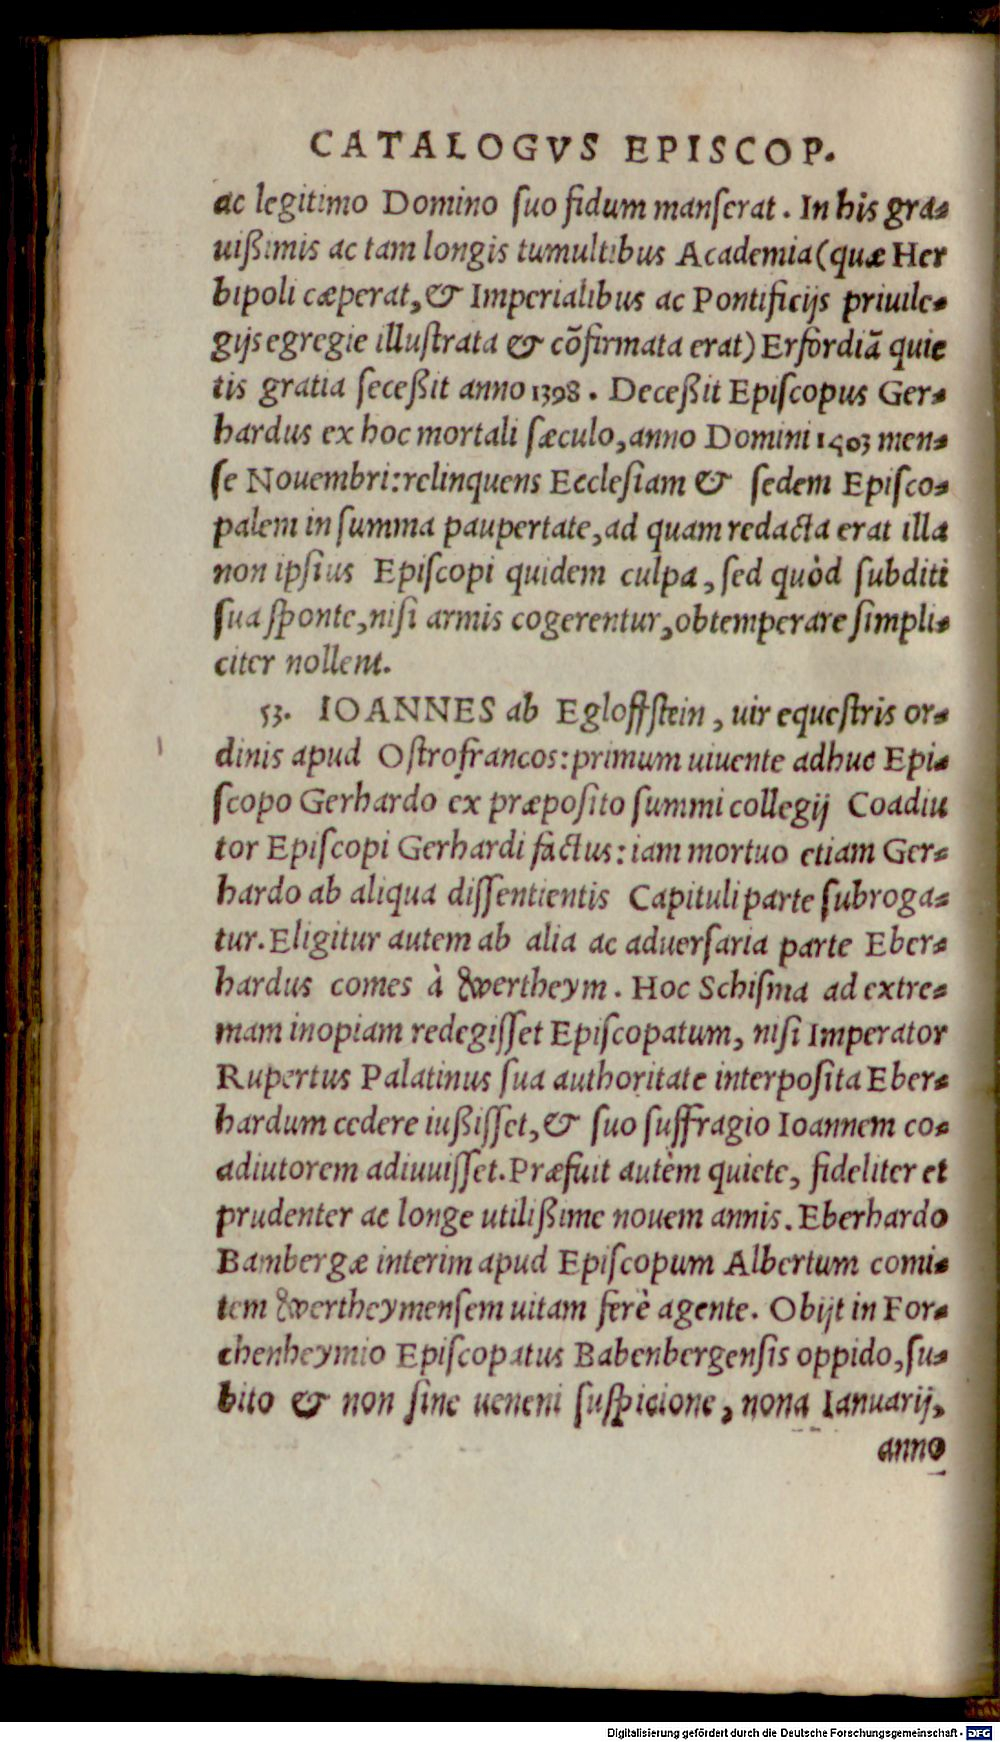 CATALOGVS EPISCOP.
ac legitimo Domino ſuo fidum manſerat. In his gra-
uißimis ac tam longis tumultibus Academia (quæ Her
bipoli cæperat, & Imperialibus ac Pontificijs priuile-
gijs egregie illuſtrata & cõfirmata erat) Erfordiã quie
tis gratia ſeceßit anno 1398. Deceßit Epiſcopus Ger-
hardus ex hoc mortali ſæculo, anno Domini 1403 men-
ſe Nouembri: relinquens Eccleſiam & ſedem Epiſco-
palem in ſumma paupertate, ad quam redacta erat illa
non ipſius Epiſcopi quidem culpa, ſed quòd ſubditi
ſua ſponte, niſi armis cogerentur, obtemperare ſimpli-
citer nollent.
53. IOANNES ab Egloffſtein, uir equeſtris or-
dinis apud Oſtrofrancos: primum uiuente adhuc Epi-
ſcopo Gerhardo ex præpoſito ſummi collegij Coadiu
tor Epiſcopi Gerhardi factus: iam mortuo etiam Ger-
hardo ab aliqua diſſentientis Capituli parte ſubroga-
tur. Eligitur autem ab alia ac aduerſaria parte Eber-
hardus comes à Wertheym. Hoc Schiſma ad extre-
mam inopiam redegiſſet Epiſcopatum, niſi Imperator
Rupertus Palatinus ſua authoritate interpoſita Eber-
hardum cedere iußiſſet, & ſuo ſuffragio Ioannem co-
adiutorem adiuuiſſet. Præfuit autèm quiete, fideliter et
prudenter ac longe utilißime nouem annis. Eberhardo
Bambergæ interim apud Epiſcopum Albertum comi-
tem Wertheymenſem uitam ferè agente. Obijt in For-
chenheymio Epiſcopatus Babenbergenſis oppido, ſu-
bito & non ſine ueneni ſuſpicione, nona Ianuarij,
anno
Digitalisierung gefördert durch die Deutsche Forschungsgemeinschaft - DFG